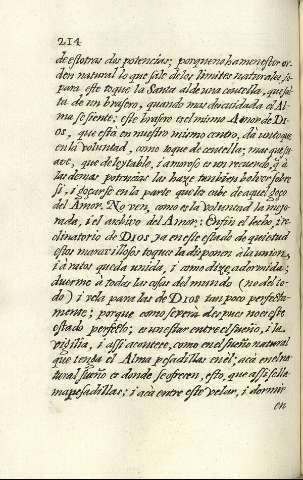 214
de estotras dos potencias; porque no ha menester or-
den natural lo que sale de los limites naturales, i
para este toque la Santa al de una centella, que sal-
ta de un brasero, quando mas descuidada el Al-
ma se siente: este brasero es el mismo Amor de DI-
OS, que està en nuestro mismo centro, dà un toque
en la voluntad, como toque de centella; mas que su-
ave, que deleytable, i amoroso es un recuerdo, q̃ à
las demas potencias las haze tambien bolver sobre
si, i gozarse en la parte que les cabe de aquel gozo
del Amor. No ven, como es la voluntad la mejo-
rada, i el archivo del Amor: Enfin el lecho, i re-
clinatorio de DIOS, ya en este estado de quietud
estos maravillosos toques la disponen à la union,
i à ratos queda unida, i como dize adormida;
duerme à todas las cosas del mundo (no del to-
do) i vela para las de DIOS un poco perfecta-
mente; porque como se verà despues no es este
estado perfecto; es un estar entre el sueño, i la
vigilia, i assi acontece, como en el sueño natural
que tenga el Alma pesadillas en èl; acà en el na-
tural sueño es donde se ofrecen, esto, que assi se lla-
ma pesadillas; i acà entre este velar, i dormir
en